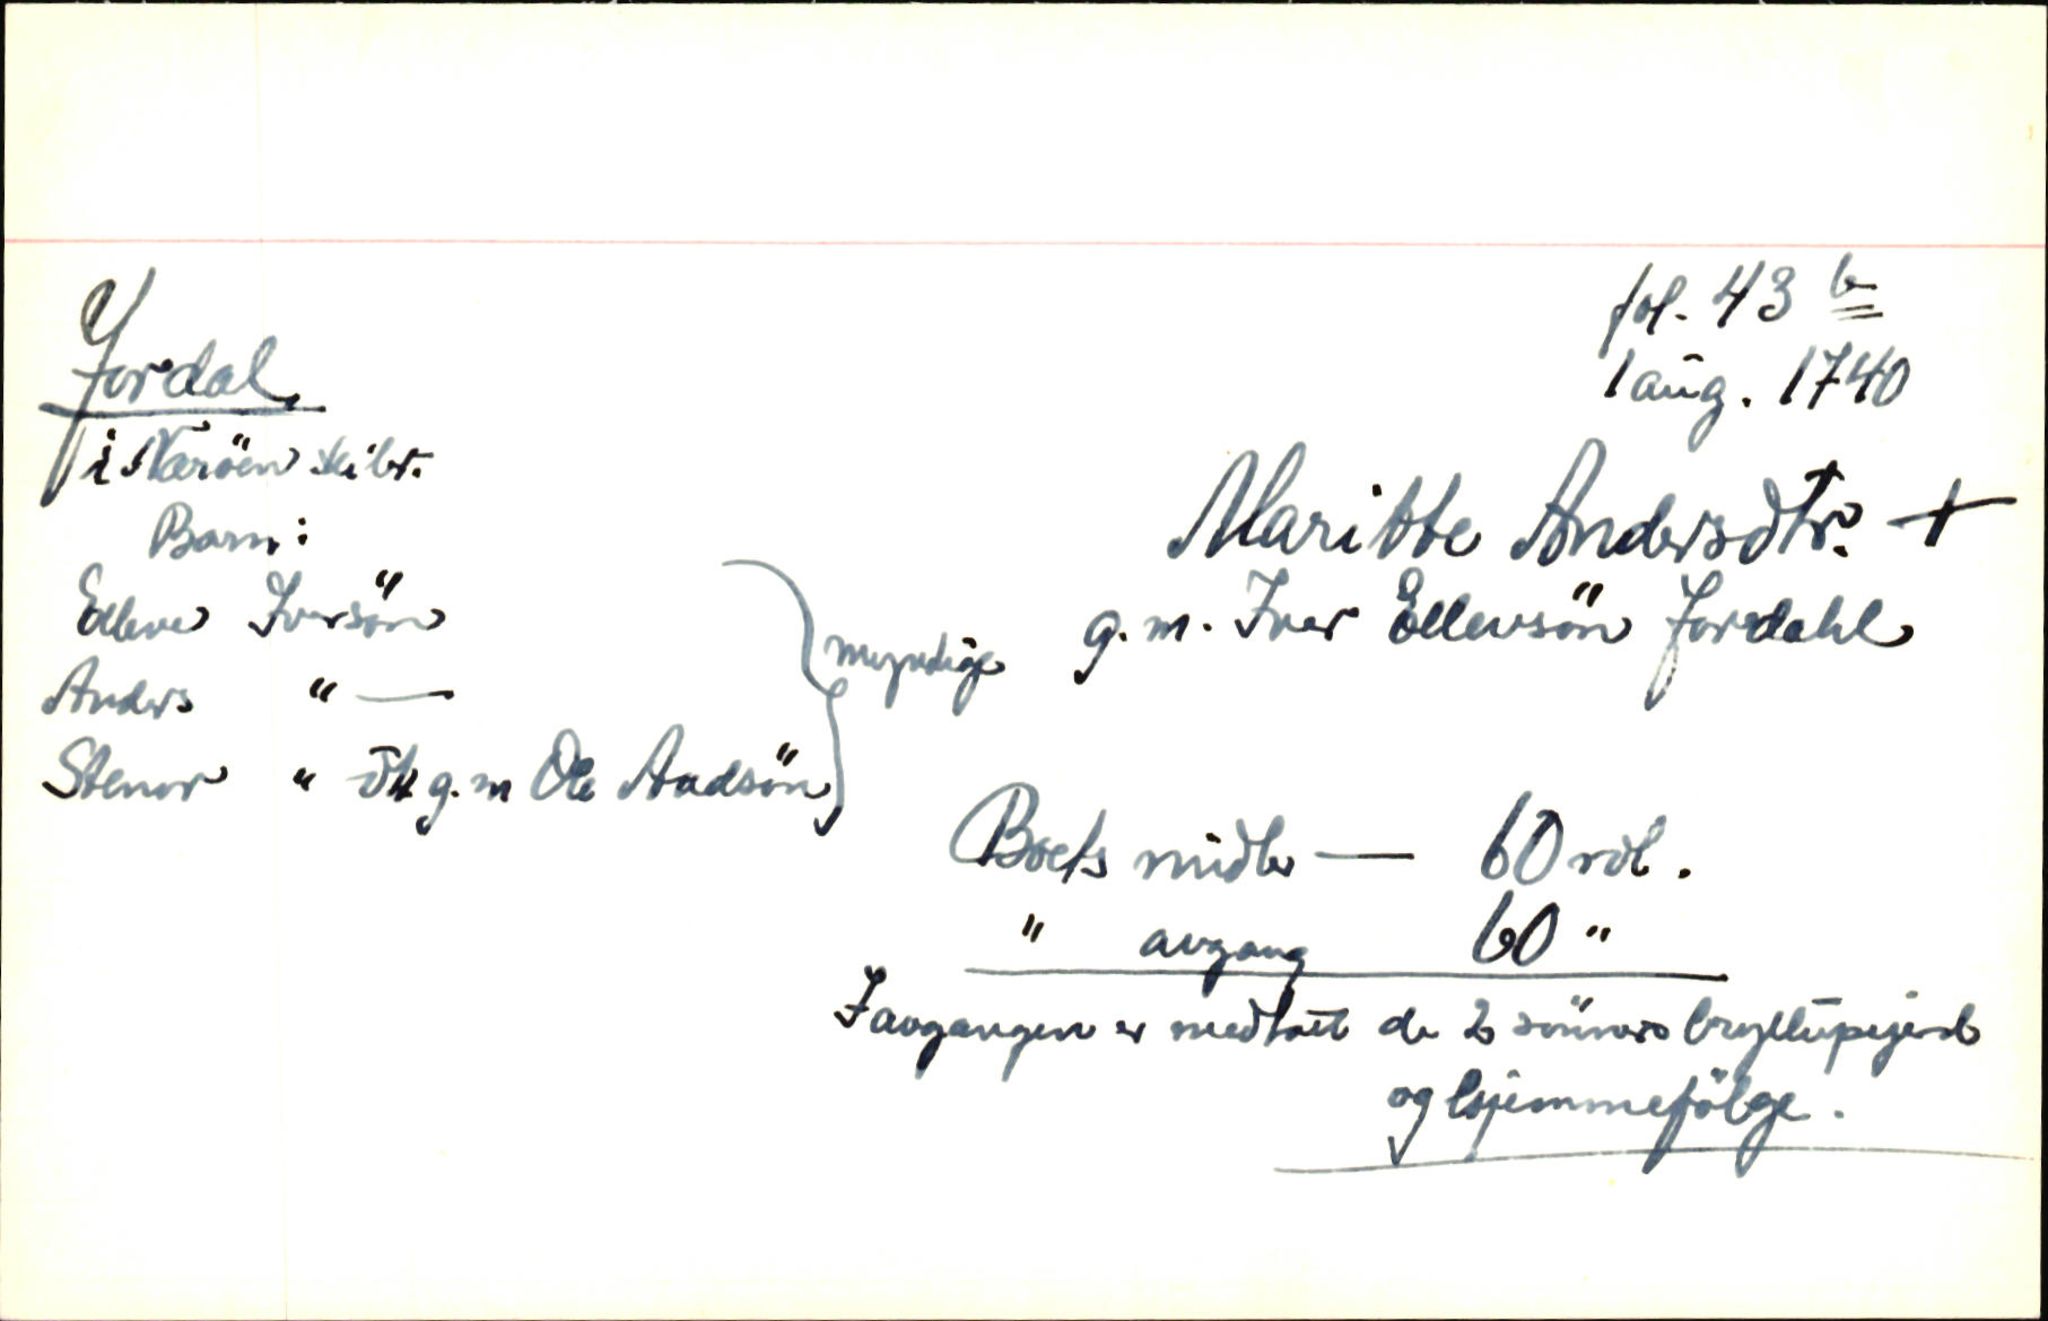 fol. 43 b
1 aug. 1740
Jordal
i Næröen skibr.
Maritte Andersdtr. +
g.m. Iver Ellevsön Jordahl
Barn:
Elleve Iversön
Anders " —
Stenor " dtr g.m Ole Aadsön
} myndige
Boets midler — 60 rdl.
" avgang 60 "
I avgangen er medtatt de 2 sönners bryllupsgjerd
og hjemmefölge.